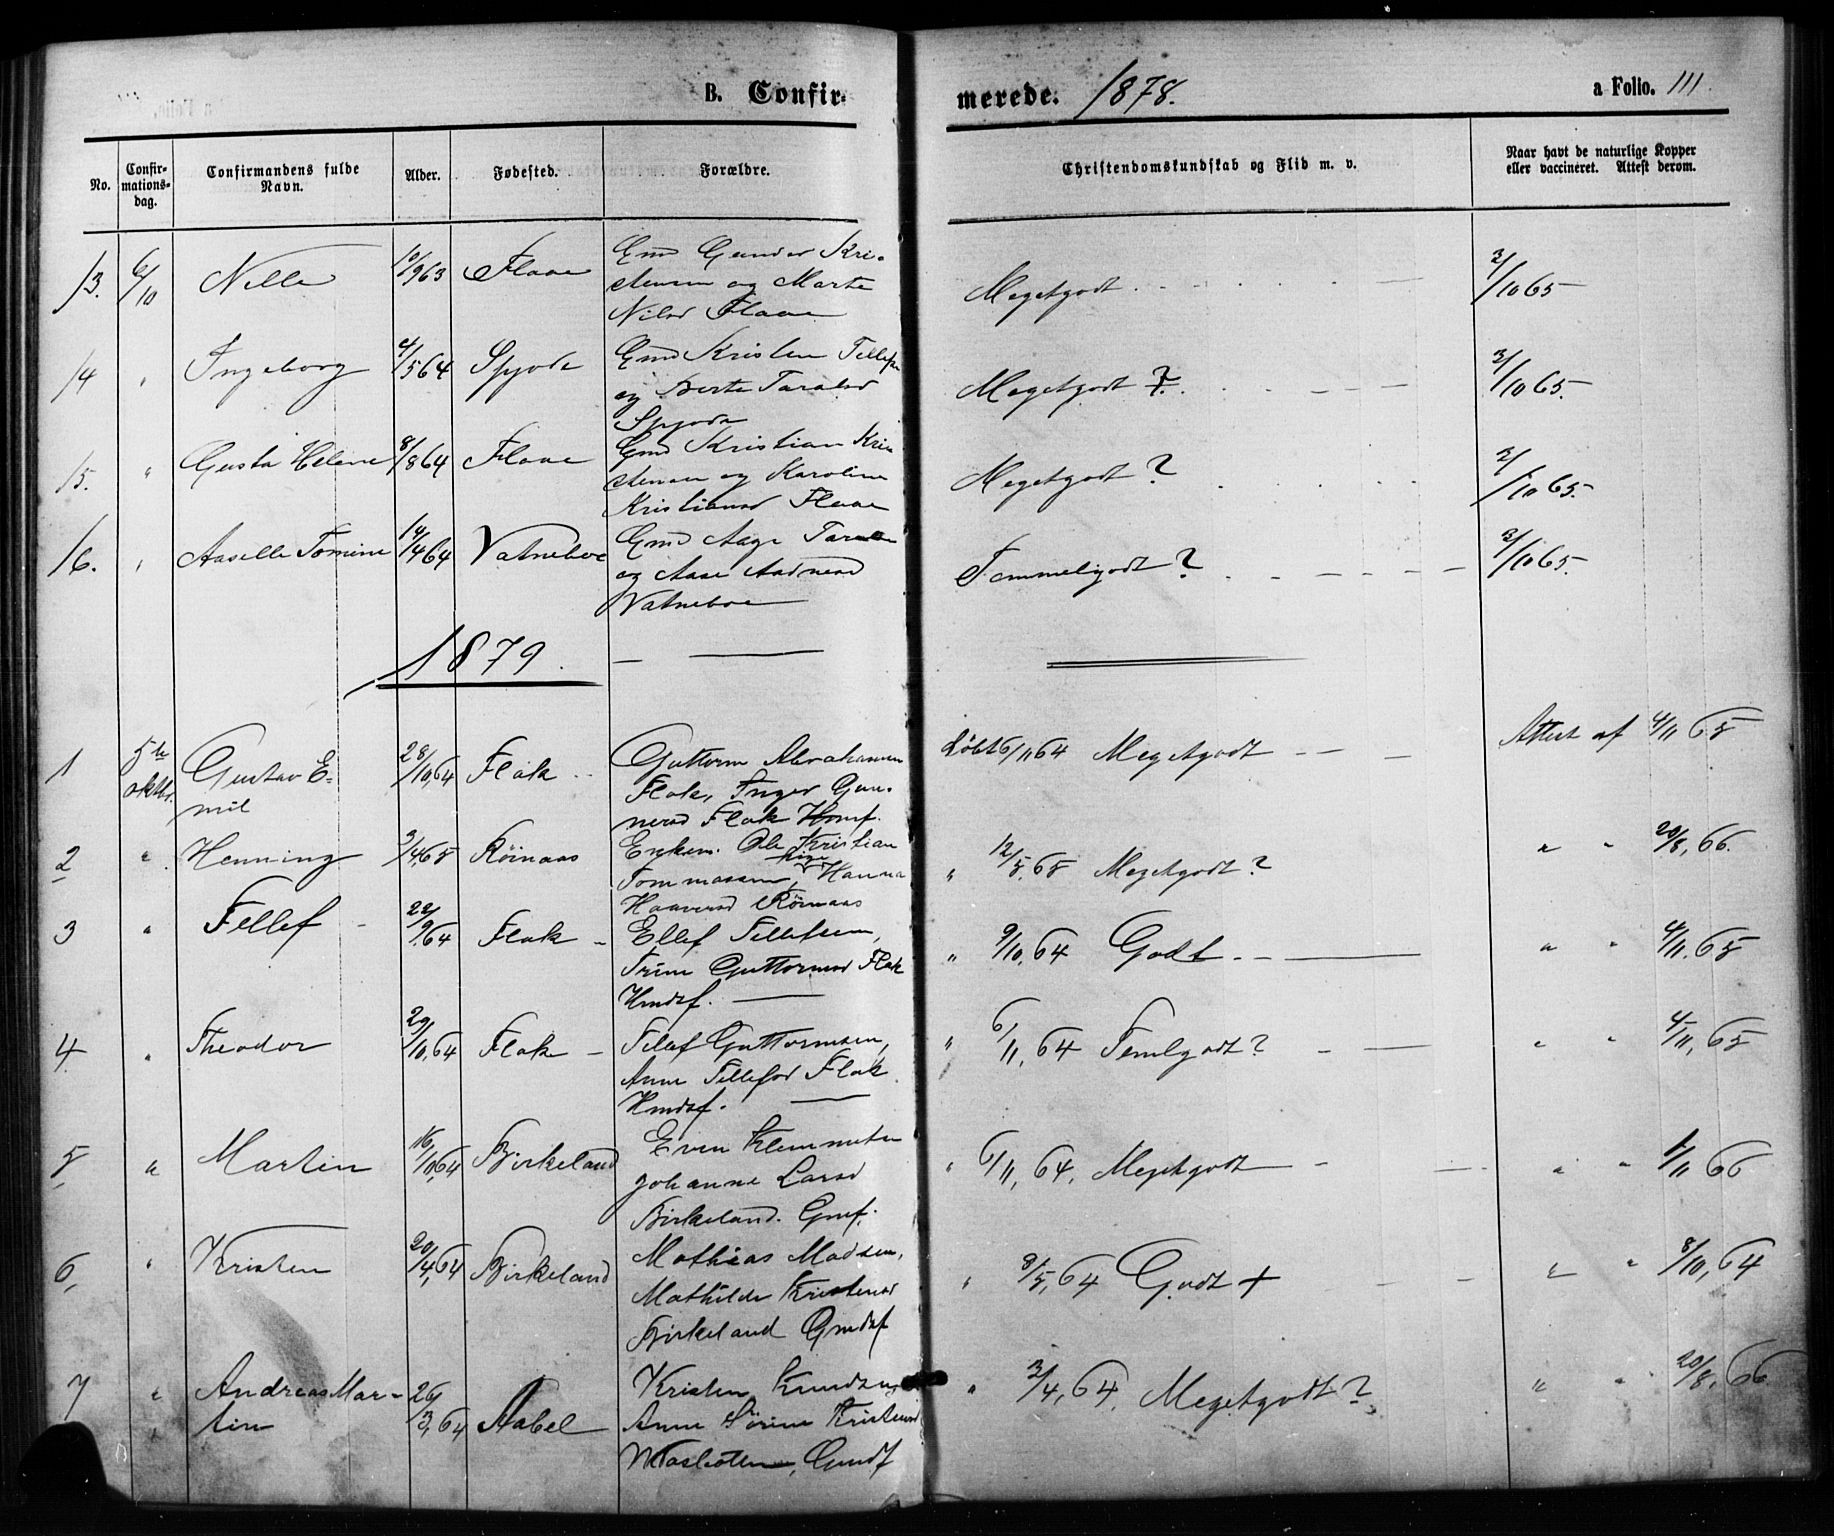 B. Confir-
merede. 1878.
a Folio. 111.
No.
Confir-
mations-
dag.
Confirmandens fulde
Navn.
Alder.
Fødested.
Forældre.
Christendomskundskab og Flid m. v.
Naar havt de naturlige Kopper
eller vaccineret. Attest derom.
13. 6/10 Nille 10/9 63 Flaae Gmd Gunder Kri-
stensen og Marte
Nilsd Flaae
Megetgodt 2/10 65
14 " Ingeborg 4/5 64 Gmd Kristen Tellefs
og Berte Taralsd
Megetgodt 2/10 65.
15. " Gusta Helene 8/8 64 Flaae Gmd Kristian Kri-
stensen og Karoline
Kristiansd Flaae
Megetgodt ? 2/10 65.
16. " Aaselle Tomine 14/4 64 Vatneboe Gmd Aage
og Aase Aadnesd
Vatneboe
Temmeligodt ? 2/10 65.
1879.
1 5te oktbr. Gustav E-
mil
28/10, 64 Flak Guttorm Abrahamsen
Flak, Inger Gun-
nersd Flak Hmf.
Døbt 6/11 64 Megetgodt Attest af 4/11 65
2 " Henning 3/4 65 Röinaas Enkem. Ole Kristian
Tommassen, pige Hanna
Haaversd Röinaas
" 12/5, 65 Megetgodt ? " " 20/8, 66.
3 " Tellef 22/9 64 Flak Ellef Tellefsen,
Trine Guttormsd Flak
Hmdsf.
" 9/10, 64 Godt " " 4/11, 65
4. " Theodor 29/10, 64 Flak Tellef Guttormsen,
Anne Tellefsd Flak
Hmdsf.
" 6/11, 64 Temlgodt ? " " 4/11, 65
5, " Martin 16/10, 64 Birkeland Even Klemmetsen
Johanne Larsd
Birkeland. Gmf.
" 6/11, 64. Megetgodt " " 1/11 66
6, " Kristen 20/4, 64 Birkeland Mathias Madsen,
Mathilde Kristensd
Birkeland Gmdsf
" 8/5, 64 Godt + " " 8/10, 64
7 " Andreas Mar-
tin
26/3, 64 Aabel Kristen Knudsen
Anne Sörine Kristensd
Gmdf
" 3/4, 64. Megetgodt ? " " 20/8, 66